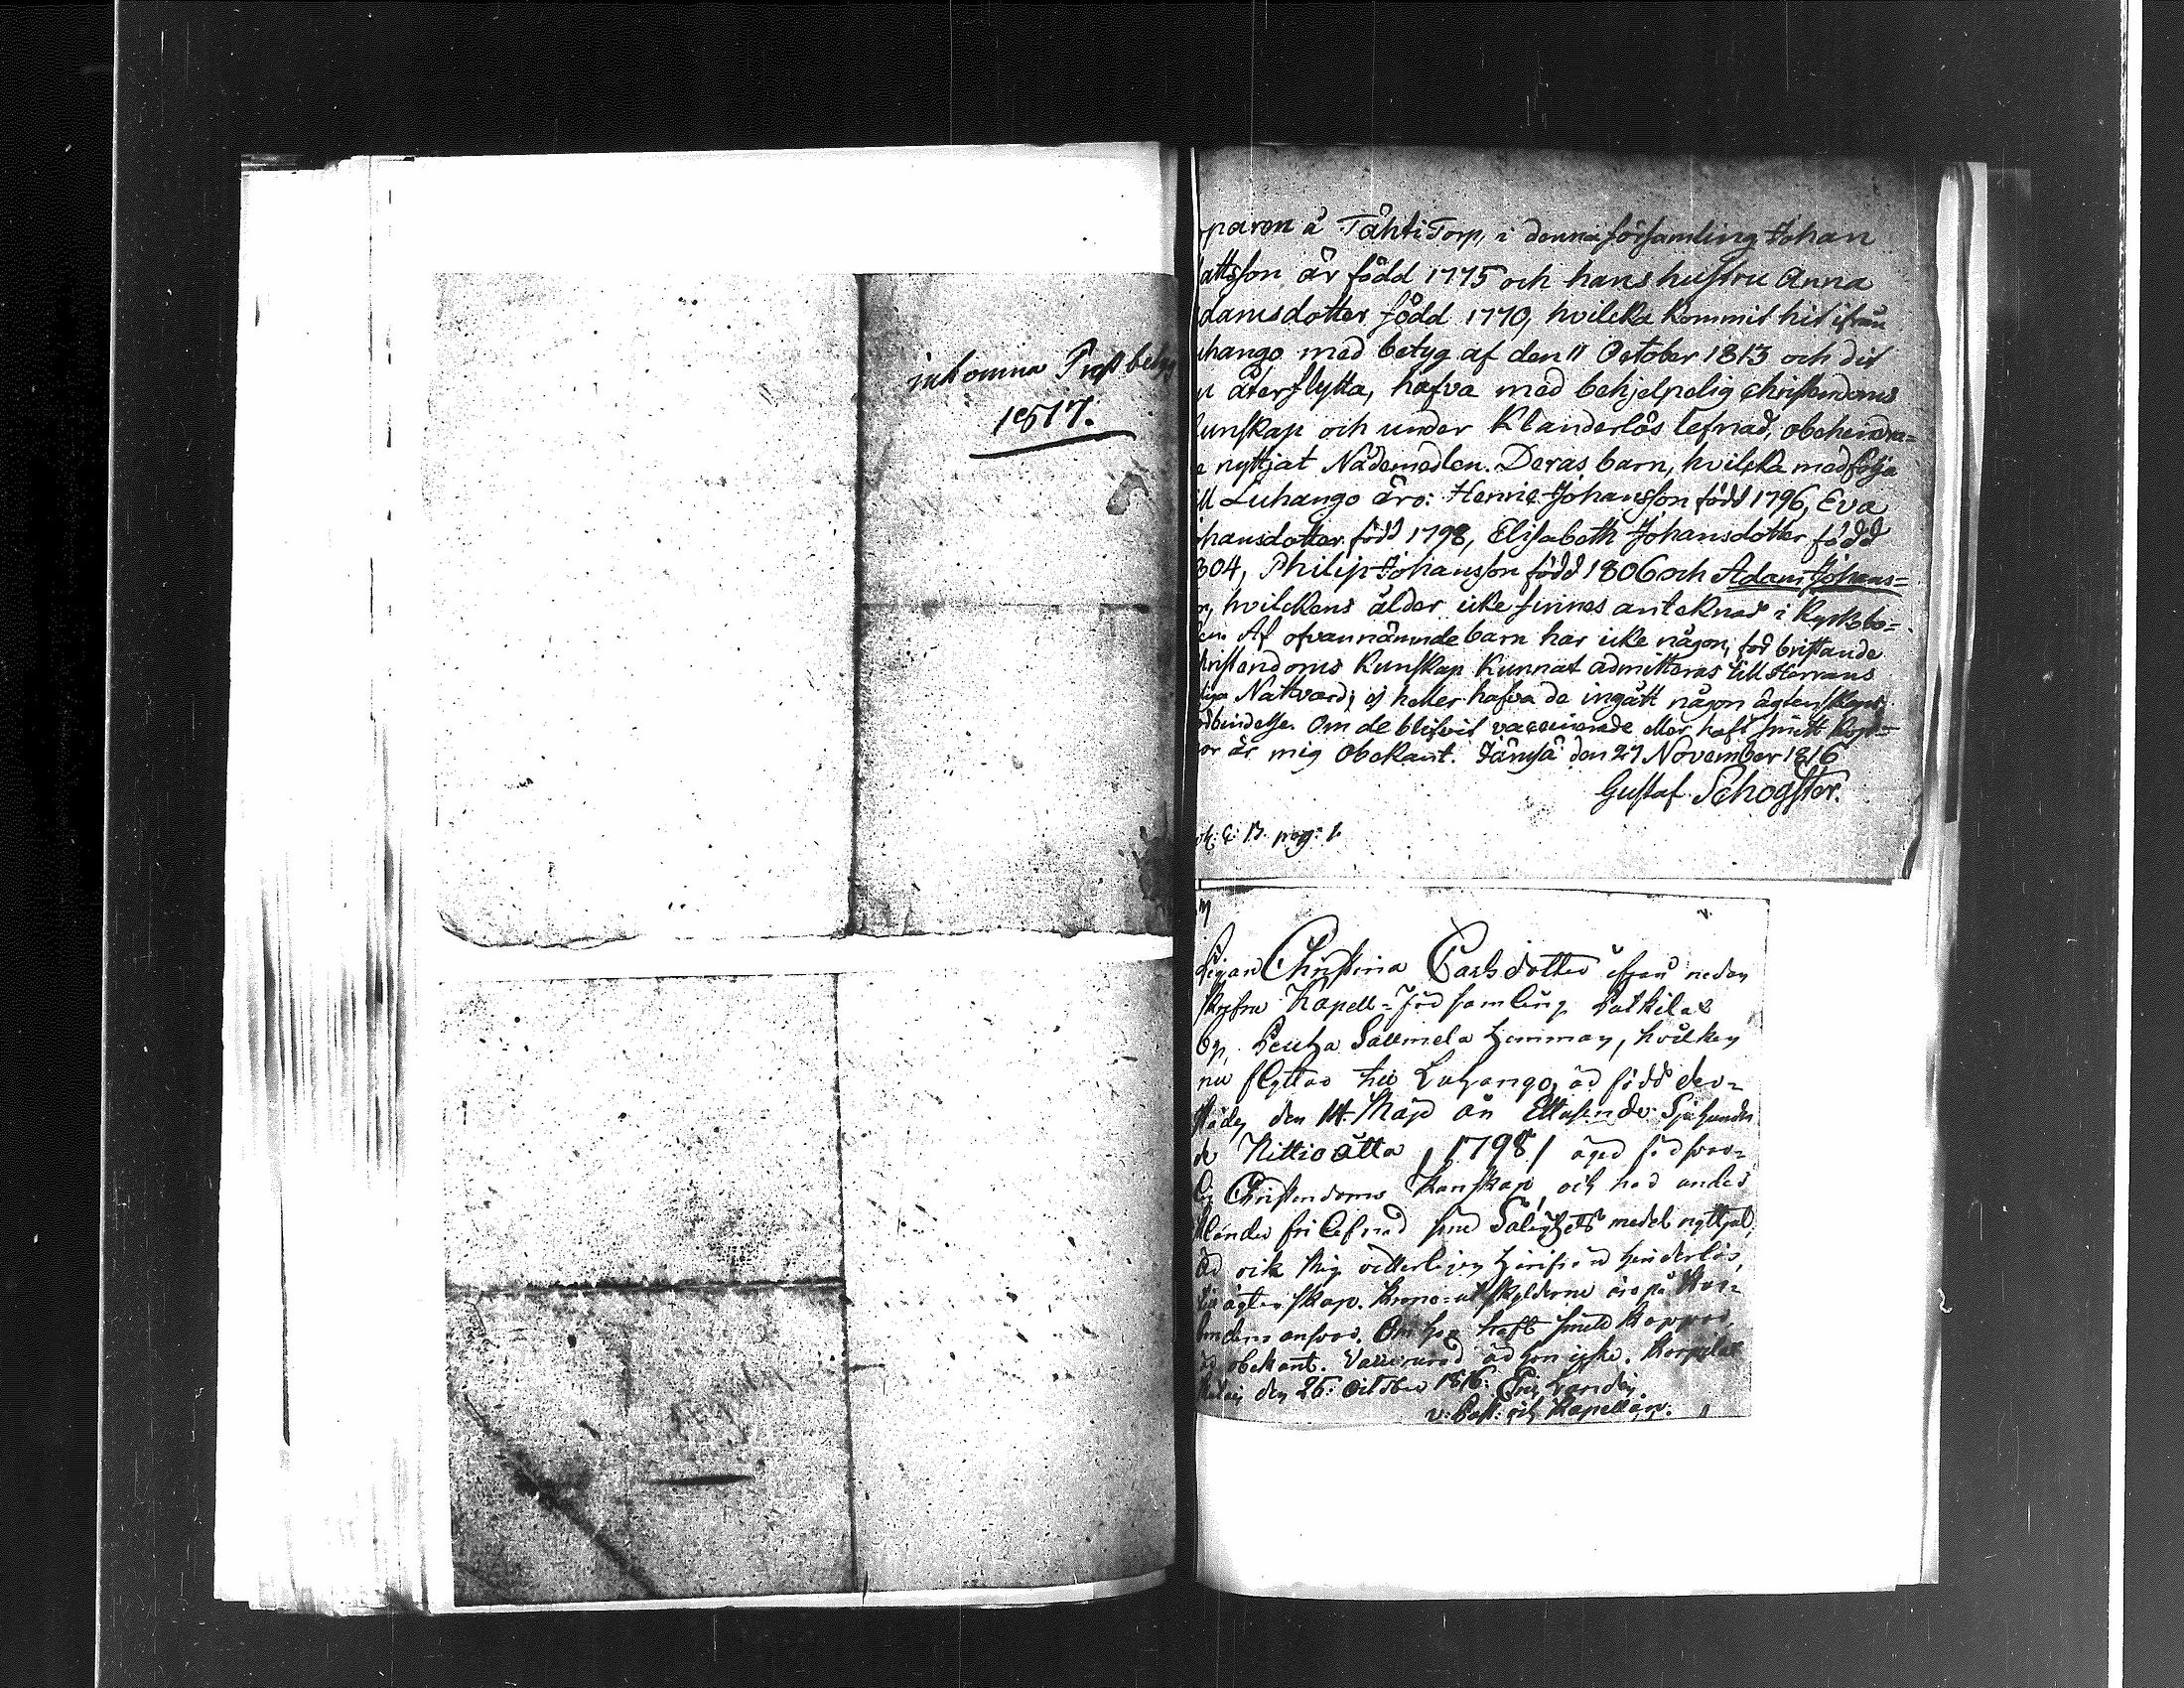 inkomna Prestbetyg
1817.
paren å Tähti Torp, i denna församling Johan
attsson är född 1775 och hans hustru Anna
damsdotter född 1770, hvilcka kommit hit ifrån
uhango med betyg af den 11 October 1813 och dit
u återflytta, hafva med behjelpelig christendoms
kunskap och under klanderlös lefnad, obehindra=
e nyttjat Nådemedlen. Deras barn, hvilcka medfölja
ill Luhango äro: Henric Johansson född 1796, Eva
ohansdotter född 1798, Elisabeth Johansdotter född
804, Philip Johansson född 1806 och Adam Johans=
on, hvilckens ålder icke finnes antecknad i Kyrkobo=
ken. Af ofvannämnde barn har icke någon, för bristande
christendoms kunskap kunnat admitteras till Herrans
liga Nattvard; ej heller hafva de ingått någon ägtenskaps
örbindelse. Om de blifvit vaccinerade eller haft smitt kop=
por är mig obekant. Jämsä den 27 November 1816
Gustaf Schogster.
pag: 1.
Pigan Christina Carlsdotter ifrån nedan
skrefne Kapell=Församling
by, hemman, hvilken
nu flyttar till Luhango, är född der=
städes den 14 Maji år Ettusende Sjuhundra
de Nittioåtta /1798/ äger försvar=
lig Christendoms kunskap, och har under
klander fri lefnad sine Salighets medel nyttjat,
är ock mig vetterligen härifrån hinderlös
till ägtenskap. Krono=utskylderne äro på
ansvar. Om hon haft smitt koppor,
är obekant. Vaccinerad är hon icke. Korpilax
den 25 October 1816.
v: Past: och Kapellan.